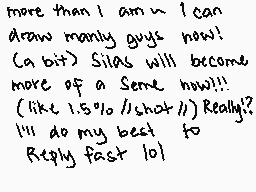 more than I am u I can
draw manly guys now!
(a bit) Silas will become
more of a Seme now!!!
(like 1.5% //shot//) Really!?
I'll do my best to
Reply fast lol